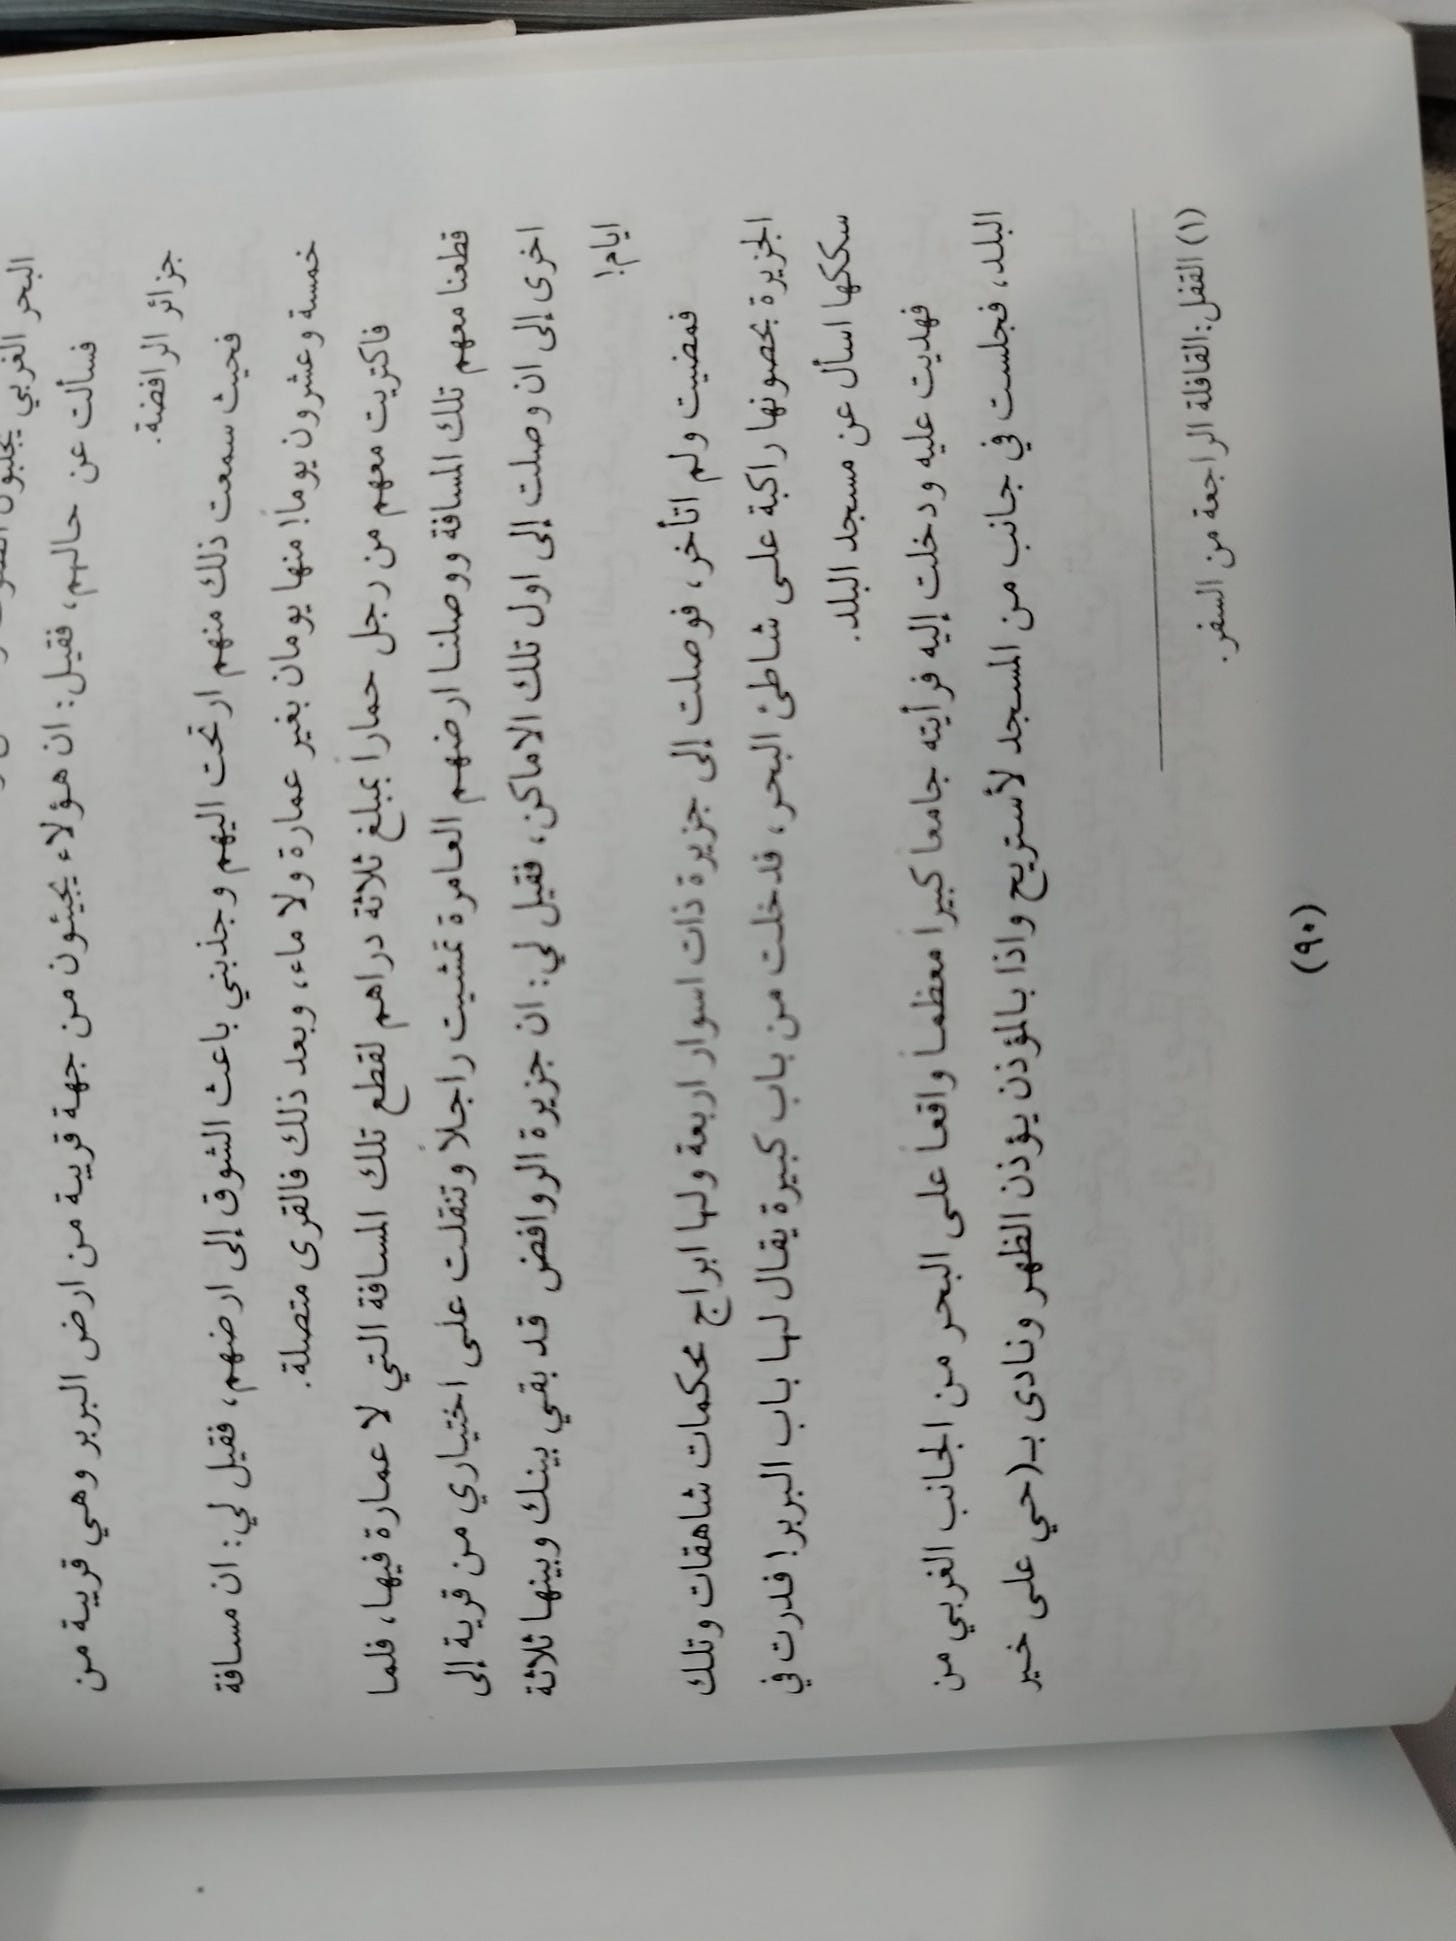 البحر الغربي يجلبون
فسألت عن حالهم، فقيل: ان هؤلاء يجيئون من جهة قريبة من ارض البربر وهي قريبة من
جزائر الرافضة.
فحيث سمعت ذلك منهم ارتحت اليهم وجذبني باعث الشوق إلى ارضهم، فقيل لي: ان مسافة
خمسة وعشرون يوماً! منها يومان بغير عمارة ولا ماء، وبعد ذلك فالقرى متصلة.
فاكتريت معهم من رجل حماراً بمبلغ ثلاثة دراهم لقطع تلك المسافة التي لا عمارة فيها، فلما
قطعنا معهم تلك المسافة ووصلنا ارضهم العامرة تمشيت راجلاً وتنقلت على اختياري من قرية إلى
اخرى إلى ان وصلت إلى اول تلك الاماكن، فقيل لي: ان جزيرة الروافض قد بقي بينك وبينها ثلاثة
ايام!
فمضيت ولم اتأخر، فوصلت إلى جزيرة ذات اسوار اربعة ولها ابراج محكمات شاهقات وتلك
الجزيرة بحصونها راكبة على شاطئ البحر، فدخلت من باب كبيرة يقال لها باب البربر! فدرت في
سككها اسأل عن مسجد البلد.
فهديت عليه ودخلت إليه فرأيته جامعاً كبيراً معظماً واقعاً على البحر من الجانب الغربي من
البلد، فجلست في جانب من المسجد لأستريح واذا بالمؤذن يؤذن الظهر ونادى بـ(حي على خير
(١) القفل: القافلة الراجعة من السفر.
(٩٠)